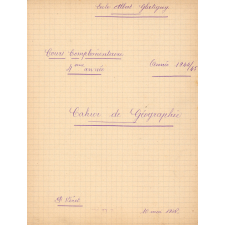 Ecole Albert Glatigny
Cours Complémentaire
4ème année
Année 1944/45
Cahier de Géographie
10 mai 1945